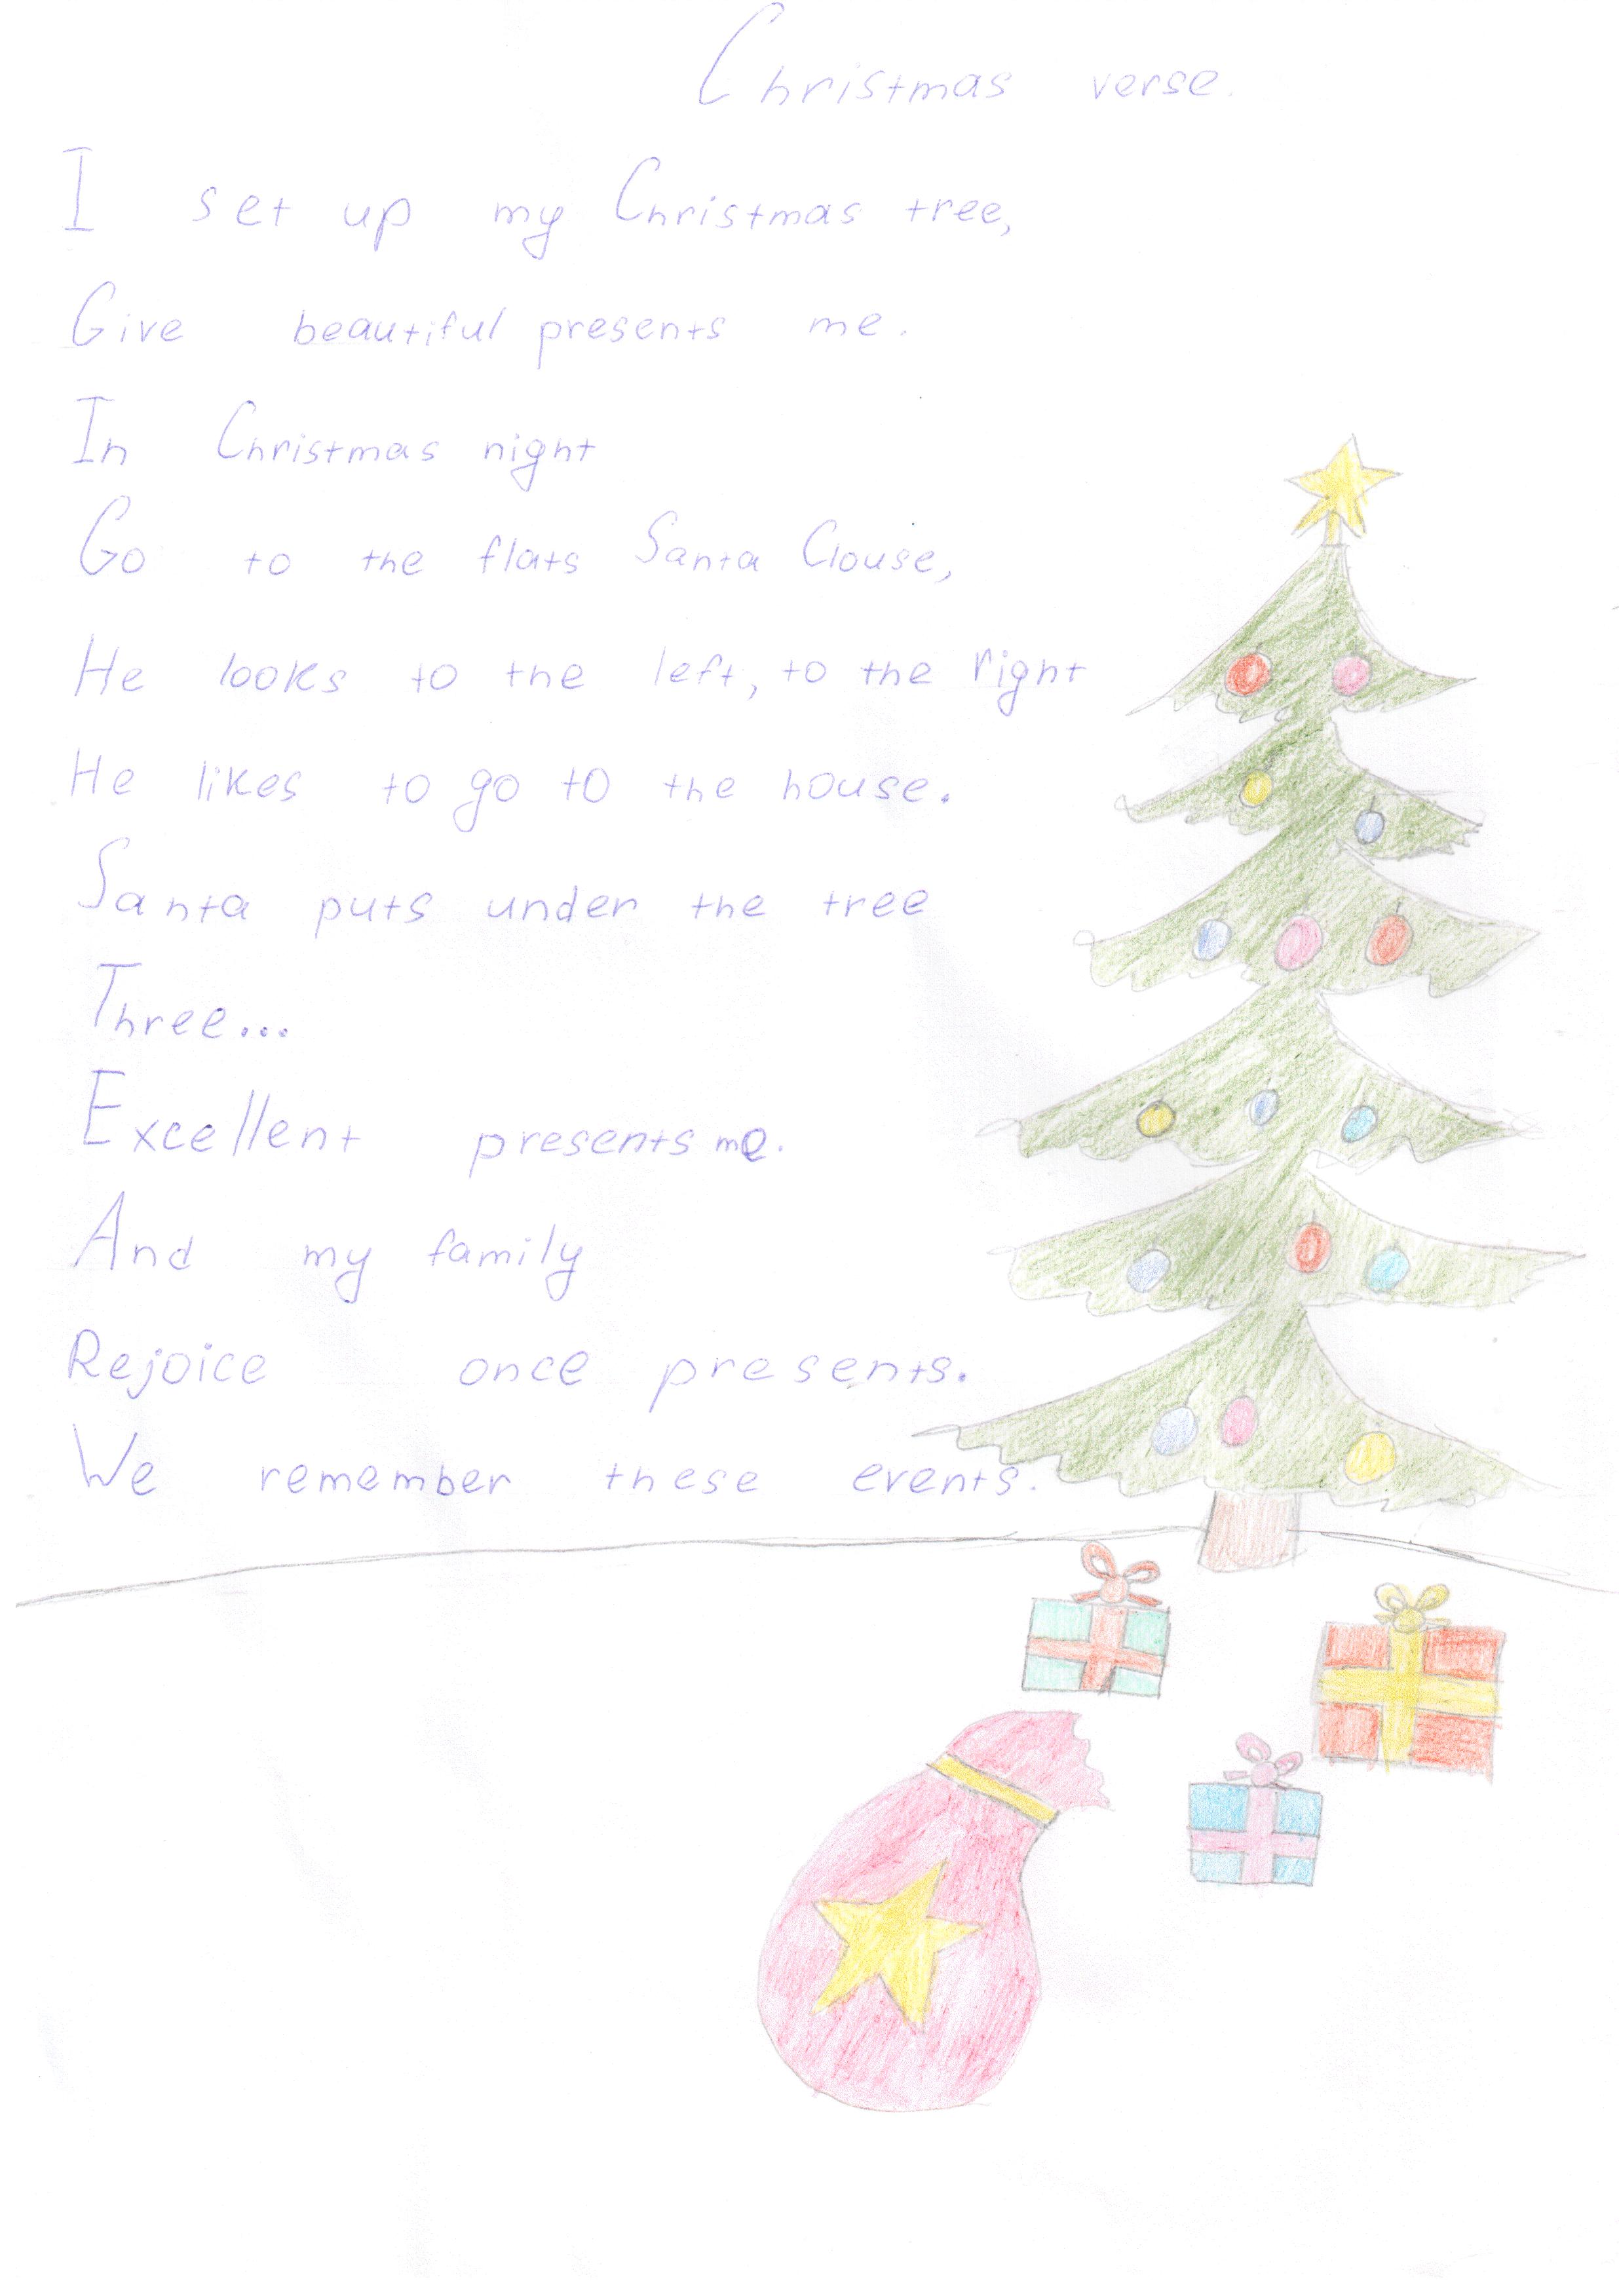 Christmas verse.
I set up my Christmas tree,
Give beautiful presents me.
In Christmas night
Go to the flats Santa Clouse,
He looks to the left, to the right
He likes to go to the house.
Santa puts under the tree
Three...
Excellent presents me.
And my family
Rejoice once presents.
We remember these events.